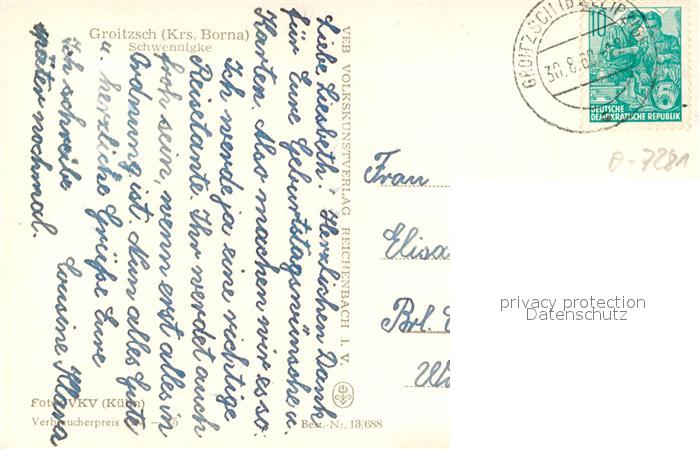 Groitzsch (Krs. Borna)
Schwennigke
Liebe Liesbeth. Herzlichen Dank
für Eure Geburtstagswünsche u.
Karten. Also machen wir es so:
Ich werde ja eine richtige
Reisetante. Ihr werdet auch
froh sein, wenn erst alles in
Ordnung ist. Nun alles Gute
u. herzliche Grüße Eure
Cousine Klara
Ich schreibe
später nochmal.
VEB VOLKSKUNSTVERLAG REICHENBACH i. V.
Foto: VKV (Kühn)
Verbraucherpreis
Best.-Nr. 13/688
GROITZSCH (BZ. LEIPZIG)
30.8.60
10
5
DEUTSCHE
DEMOKRATISCHE REPUBLIK
0-7281
Frau
Elisa
Brl.
privacy protection
Datenschutz